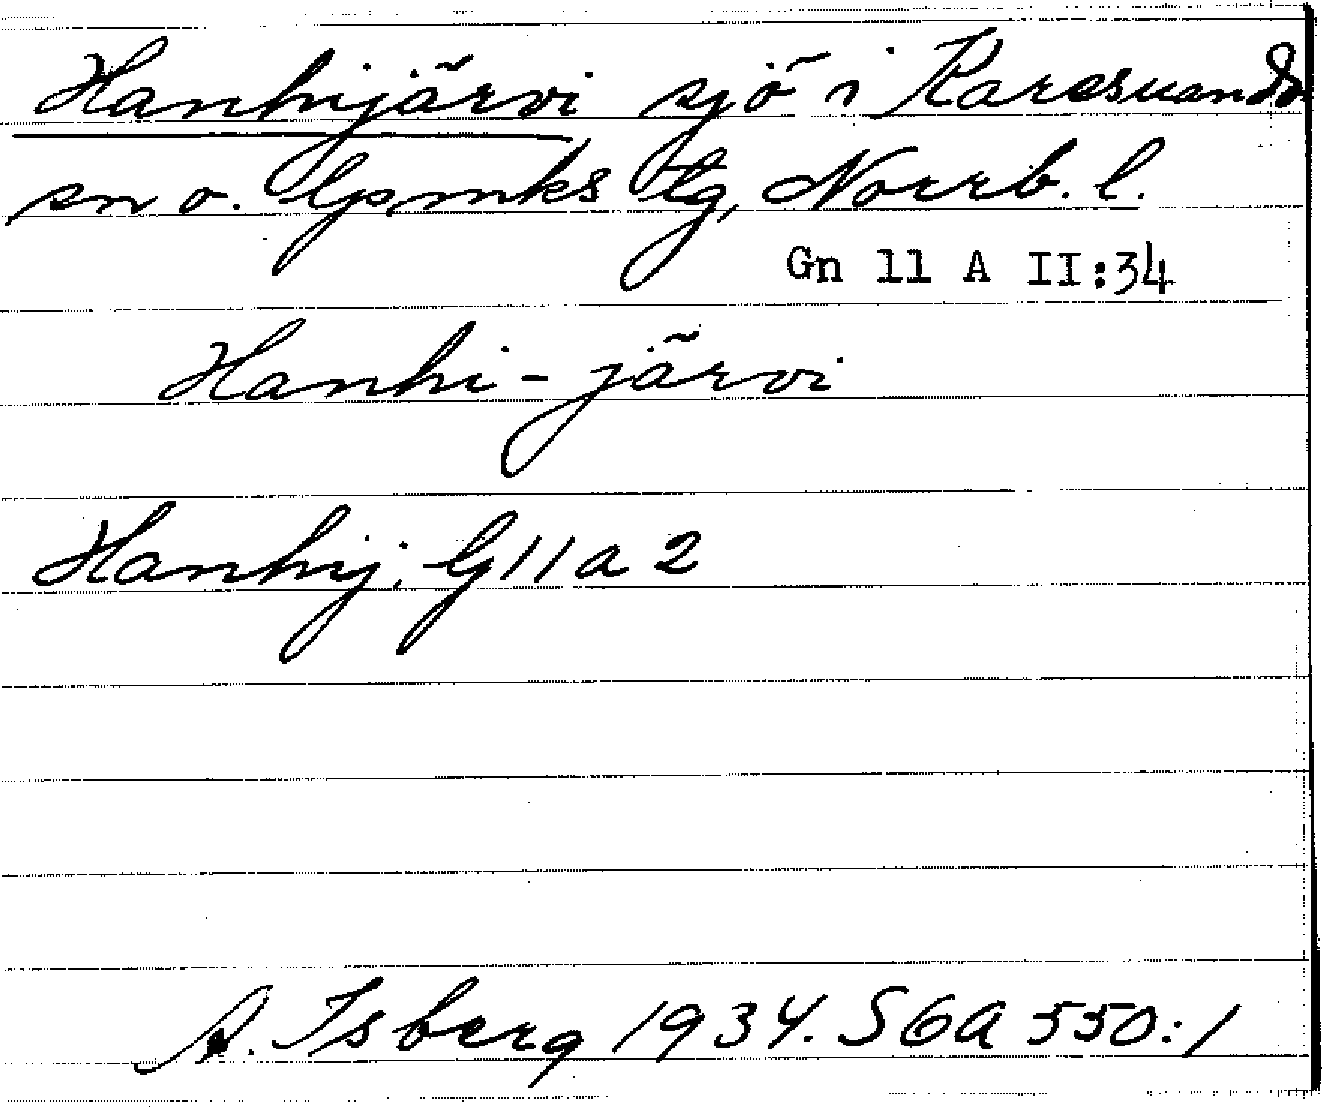 Hanhijärvi sjö i Karesuando
sn o. lpmks tg, Norrb. l.
Gn 11 A II:34
Hanhi-järvi
Hanhij. G 11 a 2
A. Isberg 1934. SGA 550:1